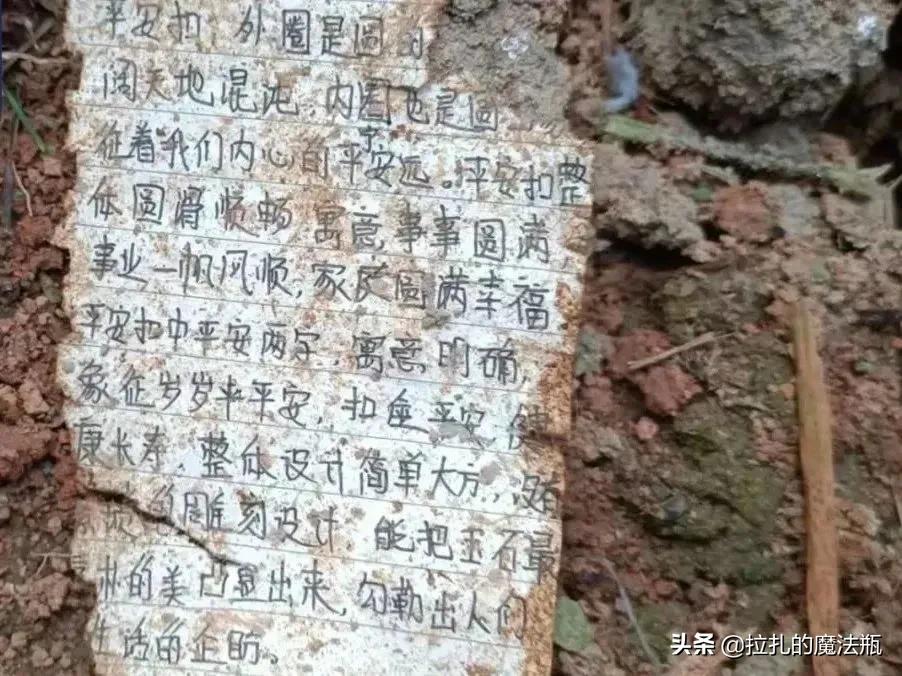 平安扣 外圈是圆
阔天地混沌,内圈也是圆
征着我们内心的平安宁远。平安扣整
体圆滑顺畅 寓意,事事圆满,
事业一帆风顺,家民圆满幸福
平安扣中平安两字,寓意明确,
象征岁岁平平安,扣 平安,健
康长寿,整体设计简单大方,没有
的雕刻设计,能把玉石最
的美凸显出来,勾勒出人们
生活的企盼。
头条 @拉扎的魔法瓶